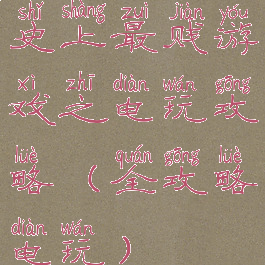 shǐ shàng zuì jiàn yóu
史上最贱游
xì zhī diàn wán gōng
戏之电玩攻
lüè quán gōng lüè
略（全攻略
diàn wán
电玩）